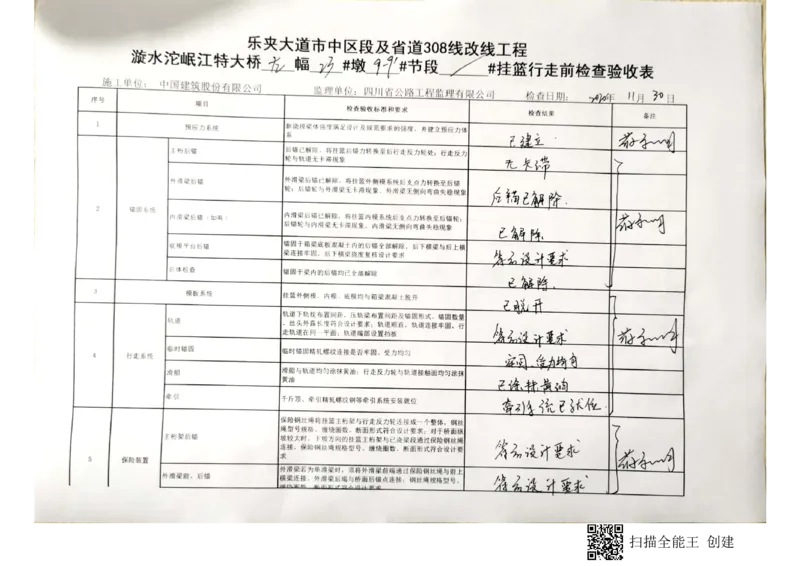 乐夹大道市中区段及省道308线改线工程
漩水沱岷江特大桥 左 幅 23 #墩 9 9' #节段 / #挂篮行走前检查验收表
施工单位： 中国建筑股份有限公司 监理单位：四川省公路工程监理有限公司 检查日期： 2020年 11月 30日
序号 项目 检查验收标准和要求 检查结果 备注
1 预应力系统 新浇段梁体强度满足设计及规范要求的强度，并建立预应力体系 已建立
2 锚固系统
主桁后锚 后锚已解除，将挂篮后锚力转换至后行走反力轮处；行走反力轮与轨道无卡滞现象 无卡滞
外滑梁后锚 外滑梁后锚已解除，将挂篮外侧模系统后支点力转换至后锚轮；后锚轮与外滑梁无卡滞现象，外滑梁无侧向弯曲失稳现象 后锚已解除.
内滑梁后锚（如有） 内滑梁后锚已解除，将挂篮内模系统后支点力转换至后锚轮；后锚轮与内滑梁无卡滞现象，内滑梁无侧向弯曲失稳现象 已解除.
底模平台后锚 锚固于箱梁底板混凝土内的后锚全部解除，后下横梁与后上横梁连接牢固，后下横梁强度复核设计要求 符合设计要求
总体检查 锚固于梁内的后锚均已全部解除 已解除.
3 模板系统 挂篮外侧模、内模、底模均与箱梁混凝土脱开 已脱开
4 行走系统
轨道 轨道下轨枕布置间距、压轨梁布置间距及锚固形式、锚固数量、丝头外露长度符合设计要求；轨道顺直，轨道连接牢固，行走轨道在同一平面；轨道端部设置挡板 符合设计要求
临时锚固 临时锚固精轧螺纹连接是否牢固，受力均匀 牢固、受力均匀
滑船 滑船与轨道均匀涂抹黄油；行走反力轮与轨道接触面均匀涂抹黄油 已涂抹黄油
牵引 千斤顶、牵引精轧螺纹钢等牵引系统安装就位 牵引系统已就位.
5 保险装置
主桁架后锚 保险钢丝绳将挂篮主桁架与行走反力轮连接成一个整体，钢丝绳型号规格、缠绕圈数、断面形式符合设计要求；对于桥面纵坡较大时，下坡方向的挂篮主桁架与已浇梁段通过保险钢丝绳连接，保险钢丝绳规格型号、缠绕圈数、断面形式符合设计要求 符合设计要求
外滑梁前、后锚 外滑梁若为单滑梁时，须将外滑梁前端通过保险钢丝绳与前上横梁连接，外滑梁后端与桥面后锚点连接，钢丝绳规格型号、缠绕圈数、断面形式符合设计要求 符合设计要求
扫描全能王 创建